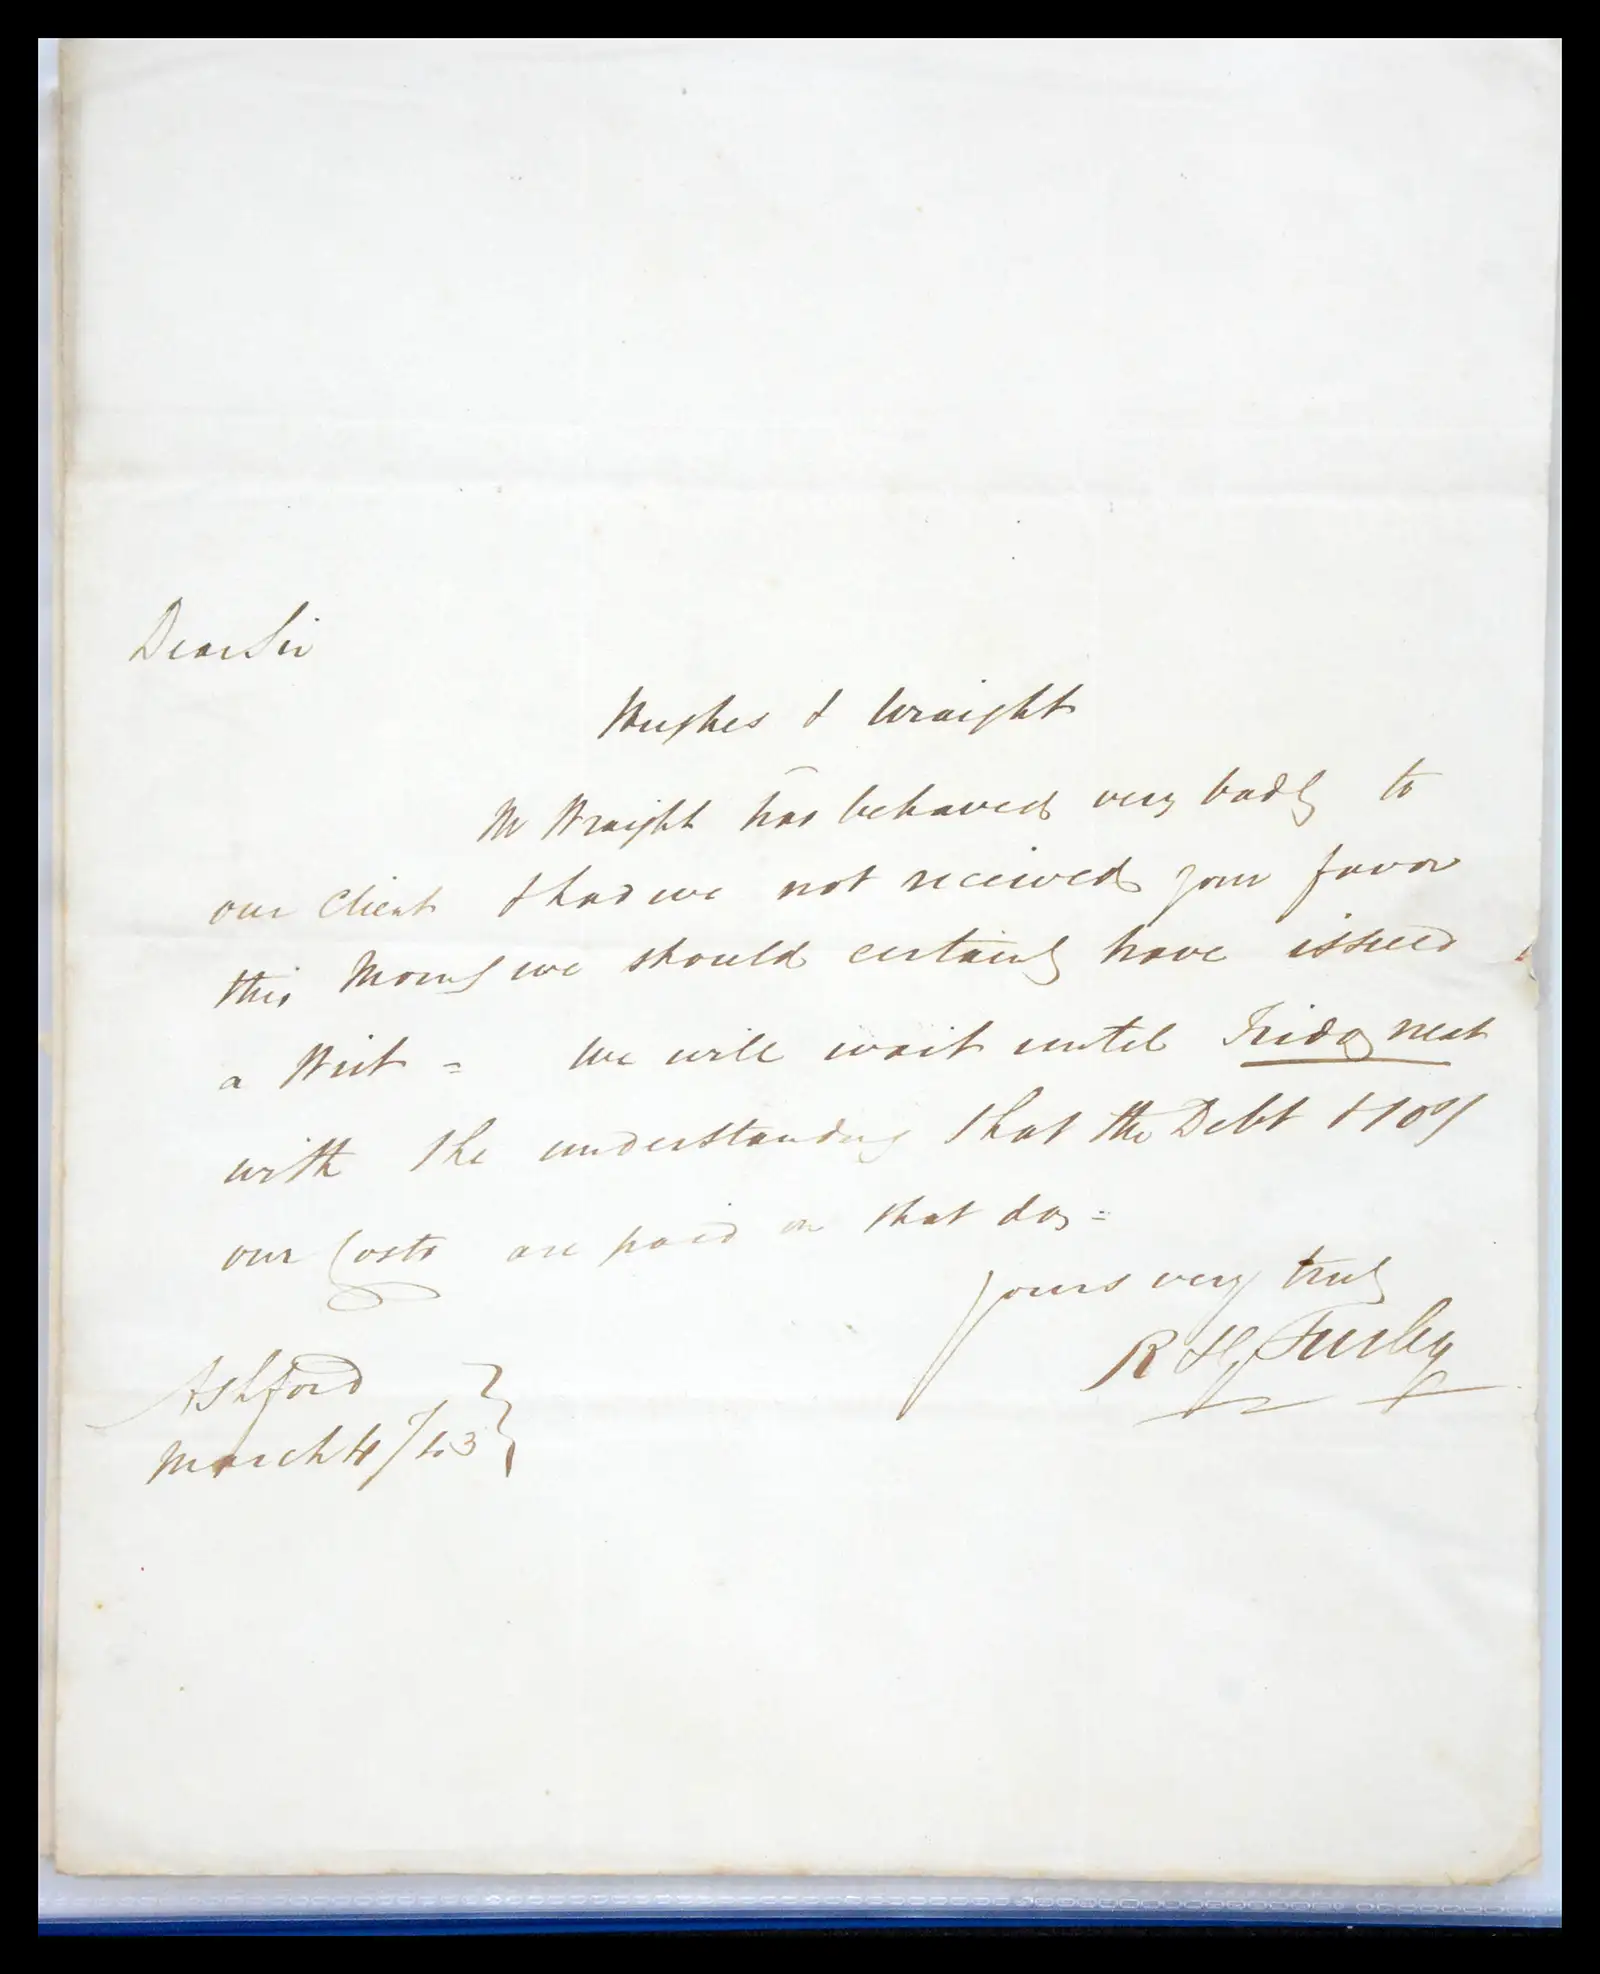 Dear Sir
Hughes & Wraight
Mr Wraight has behaved very badly to
our Client & had we not received your favor
this Morng we should certainly have issued
a Writ = We will wait until Friday next
with the understanding that the Debt & 10s/
our Costs are paid on that day =
Yours very truly
R H Furley
Ashford
March 4/43